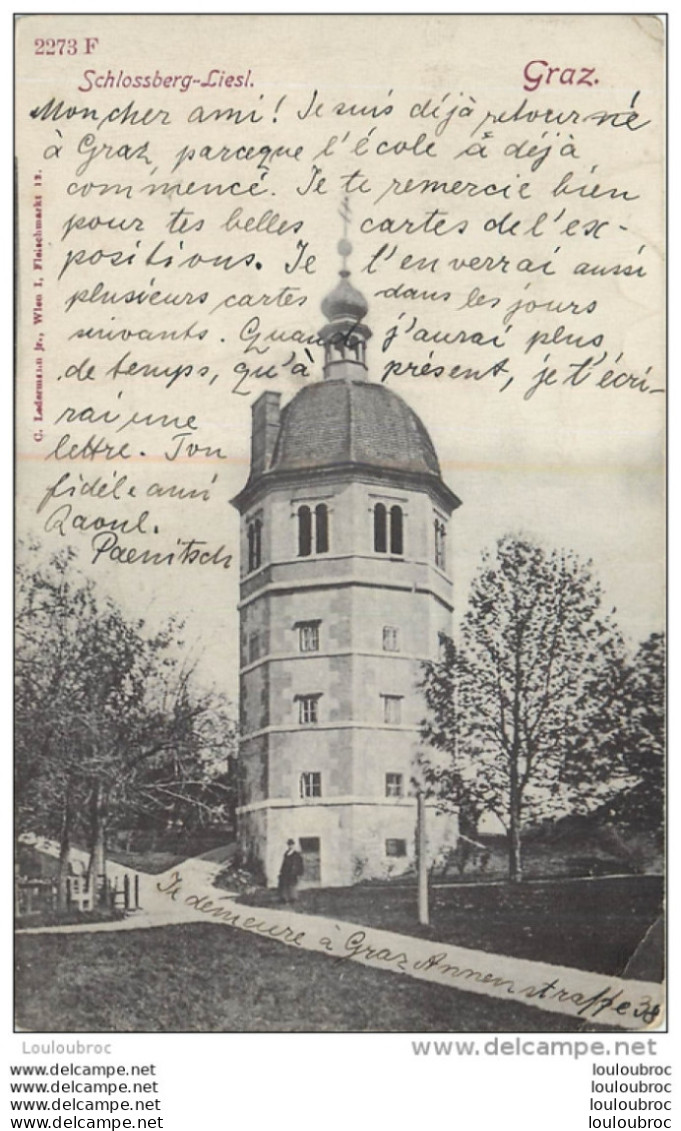 2273 F
Schlossberg-Liesl.
Graz.
Mon cher ami! Je suis déjà retourné
à Graz parceque l'école a déjà
commencé. Je te remercie bien
pour tes belles cartes de l'ex-
positions. Je t'enverrai aussi
plusieurs cartes dans les jours
suivants. Quand j'aurai plus
de temps, qu'à présent, je t'écri-
rai une
lettre. Ton
fidèle ami
Raoul.
Paenitsch
C. Ledermann jr., Wien I, Fleischmarkt 12.
Je demeure à Graz Annenstraße 38
Louloubroc
www.delcampe.net
louloubroc.net
louloubroc.net
louloubroc.net
louloubroc.net
louloubroc
louloubroc
louloubroc
louloubroc